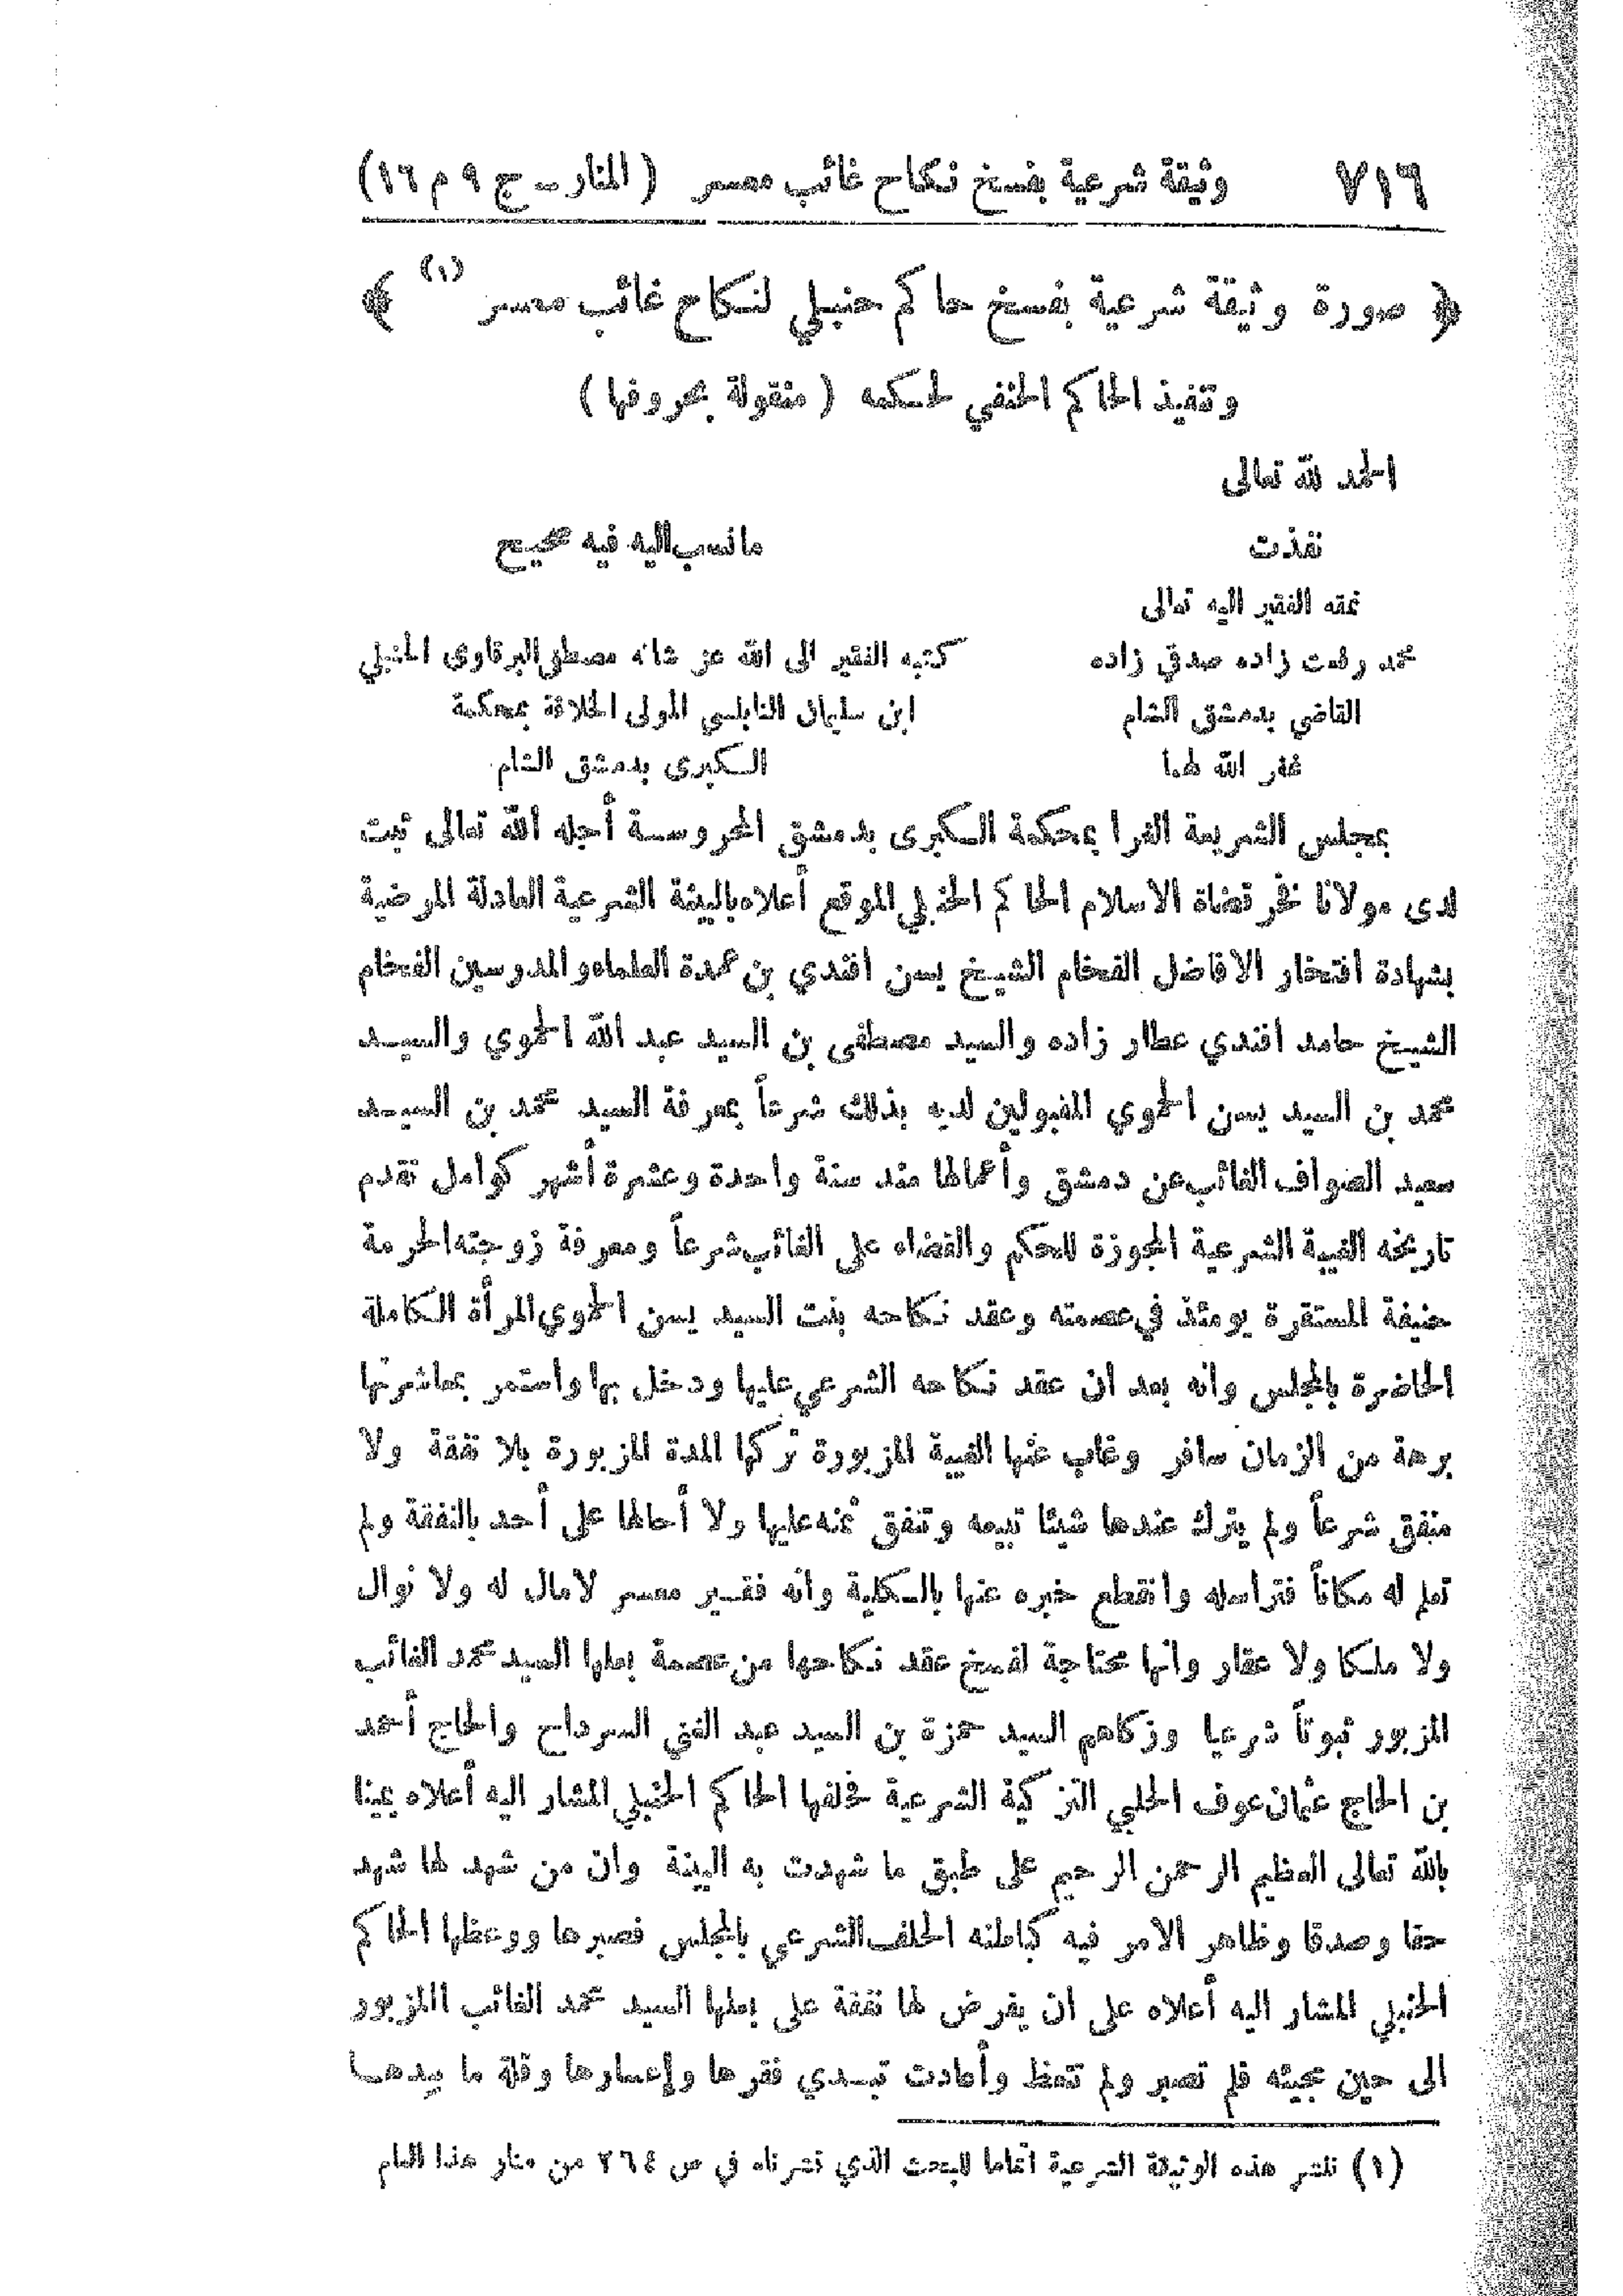 ٧١٦ وثيقة شرعية بفسخ نكاح غائب معسر (المنار ـ ج ٩ م ١٦)
﴿ صورة وثيقة شرعية بفسخ حاكم حنبلي لنكاح غائب معسر (١) ﴾
وتنفيذ الحاكم الحنفي لحكمه (منقولة بحروفها)
الحمد لله تعالى
نفذت
ما نسب اليه فيه صحيح
نمقه الفقير اليه تعالى
محمد رفعت زاده صدقي زاده
كتبه الفقير الى الله عز شانه مصطفى البرقاوي الحنبلي
القاضي بدمشق الشام
ابن سليمان النابلسي المولى الخلافة بمحكمة
غفر الله لهما
الكبرى بدمشق الشام
بمجلس الشريعة الغرا بمحكمة الكبرى بدمشق المحروسة أجله الله تعالى ثبت
لدى مولانا فخر قضاة الاسلام الحاكم الحنبلي الموقع أعلاه بالبينة الشرعية العادلة المرضية
بشهادة افتخار الافاضل الفخام الشيخ يسن افندي بن عمدة العلماء والمدرسين الفخام
الشيخ حامد افندي عطار زاده والسيد مصطفى بن السيد عبد الله الحموي والسيد
محمد بن السيد يسن الحموي المقبولين لديه بذلك شرعاً بمعرفة السيد محمد بن السيد
سعيد الصواف الغائب عن دمشق وأعمالها منذ سنة واحدة وعشرة أشهر كوامل تقدم
تاريخه الغيبة الشرعية المجوزة للحكم والقضاء على الغائب شرعاً ومعرفة زوجته الحرمة
حنيفة المستقرة يومئذ في عصمته وعقد نكاحه بنت السيد يسن الحموي المرأة الكاملة
الحاضرة بالمجلس وانه بعد ان عقد نكاحه الشرعي عليها ودخل بها واستمر بمعاشرتها
برهة من الزمان سافر وغاب عنها الغيبة المزبورة تركها المدة المزبورة بلا نفقة ولا
منفق شرعاً ولم يترك عندها شيئا تبيعه وتنفق ثمنه عليها ولا أحالها على أحد بالنفقة ولم
تعلم له مكاناً فتراسله وانقطع خبره عنها بالكلية وانه فقير معسر لا مال له ولا نوال
ولا ملكا ولا عقار وانها محتاجة لفسخ عقد نكاحها من عصمة بعلها السيد محمد الغائب
المزبور ثبوتاً شرعيا وزكاهم السيد حمزة بن السيد عبد الغني السرداح والحاج أحمد
بن الحاج عثمان عوف الحلبي التزكية الشرعية فحلفها الحاكم الحنبلي المشار اليه أعلاه يمينا
بالله تعالى العظيم الرحمن الرحيم على طبق ما شهدت به البينة وان من شهد لها شهد
حقا وصدقا وظاهر الامر فيه كباطنه الحلف الشرعي بالمجلس فصبرها ووعظها الحاكم
الحنبلي المشار اليه أعلاه على ان يفرض لها نفقة على بعلها السيد محمد الغائب المزبور
الى حين مجيئه فلم تصبر ولم تتعظ وأعادت تبدي فقرها وإعسارها وقلة ما بيدها
(١) ننشر هذه الوثيقة الشرعية اتماما للبحث الذي نشرناه في ص ٢٦٤ من منار هذا العام